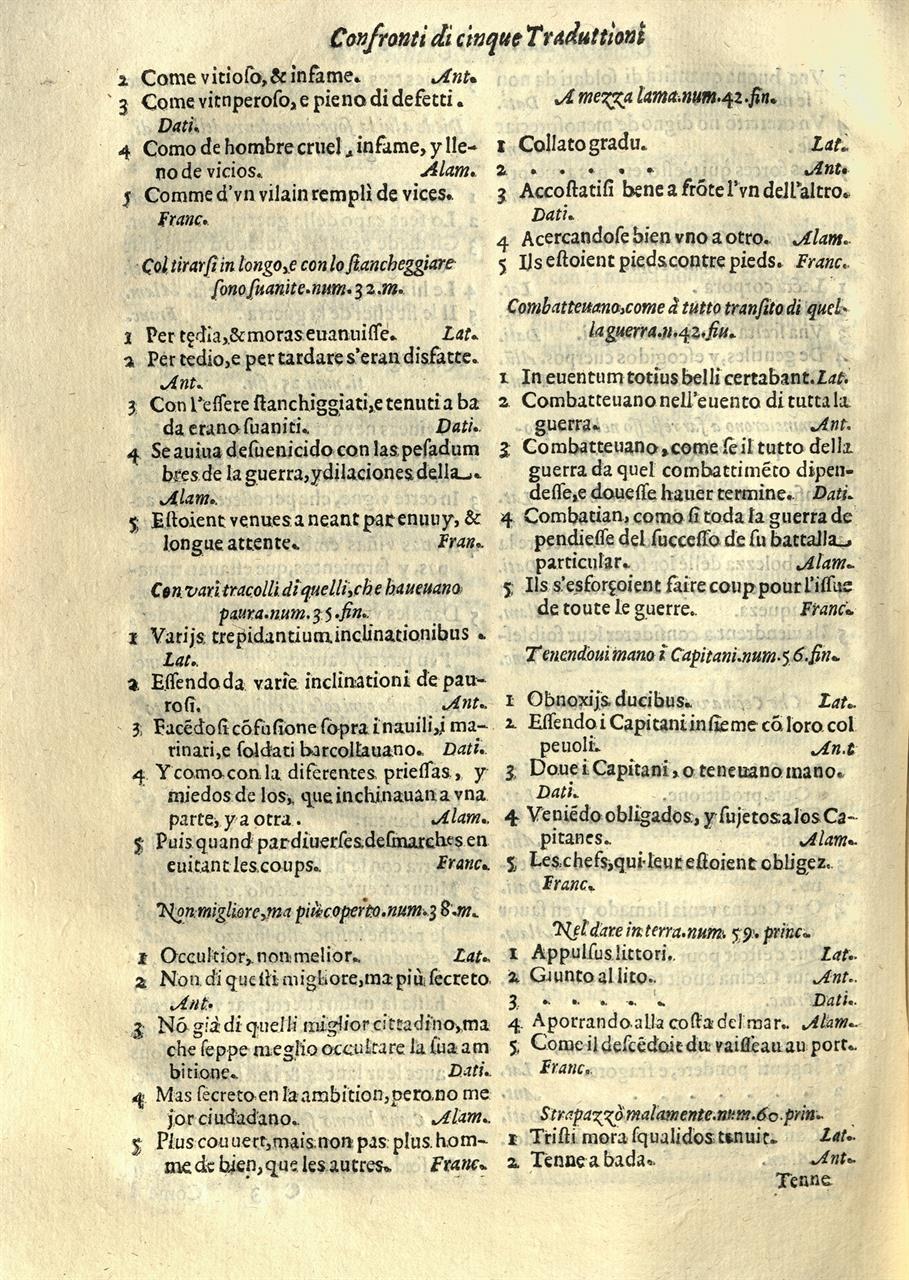 Confronti di cinque Traduttioni
2 Come vitioſo, & infame. Ant.
3 Come vitnperoſo, e pieno di defetti.
Dati.
4 Como de hombre cruel, infame, y lle-
no de vicios. Alam.
5 Comme d'vn vilain remplì de vices.
Franc.
Col tirarſi in longo, e con lo ſtancheggiare
ſono ſuanite. num. 32. m.
1 Per tędia, & moras euanuiſſe. Lat.
2 Per tedio, e per tardare s'eran disfatte.
Ant.
3 Con l'eſſere ſtanchiggiati, e tenuti a ba
da erano ſuaniti. Dati.
4 Se auiua deſuenicido con las peſadum
bres de la guerra, y dilaciones della.
Alam.
5 Eſtoient venues a neant par enuuy, &
longue attente. Fran.
Con varì tracolli di quelli, che haueuano
paura. num. 35. fin.
1 Varijs trepidantium inclinationibus.
Lat.
2 Eſſendo da varie inclinationi de pau-
roſi. Ant.
3 Facēdoſi cōfuſione ſopra i nauili, i ma-
rinari, e ſoldati barcollauano. Dati.
4 Y como con la diferentes prieſſas, y
miedos de los, que inchinauan a vna
parte, y a otra. Alam.
5 Puis quand par diuerſes deſmarches en
euitant les coups. Franc.
Non migliore, ma più coperto. num. 38. m.
1 Occultior, non melior. Lat.
2 Non di queſti migliore, ma più ſecreto
Ant.
3 Nō già di quelli miglior cittadino, ma
che ſeppe meglio occultare la ſua am
bitione. Dati.
4 Mas ſecreto en la ambition, pero no me
jor ciudadano. Alam.
5 Plus couuert, mais non pas plus hom-
me de bien, que les autres. Franc.
A mezza lama. num. 42. fin.
1 Collato gradu. Lat.
2 . . . . . . Ant.
3 Accoſtatiſi bene a frōte l'vn dell'altro.
Dati.
4 Acercandoſe bien vno a otro. Alam.
5 Ils eſtoient pieds contre pieds. Franc.
Combatteuano, come à tutto tranſito di quel-
la guerra. n. 42. fiu.
1 In euentum totius belli certabant. Lat.
2 Combatteuano nell'euento di tutta la
guerra. Ant.
3 Combatteuano, come ſe il tutto della
guerra da quel combattimēto dipen-
deſſe, e doueſſe hauer termine. Dati.
4 Combatian, como ſi toda la guerra de
pendieſſe del ſucceſſo de ſu battalla
particular. Alam.
5 Ils s'esforçoient faire coup pour l'iſſue
de toute le guerre. Franc.
Tenendoui mano i Capitani. num. 56. fin.
1 Obnoxijs ducibus. Lat.
2 Eſſendo i Capitani inſieme cō loro col
peuoli. An.t
3 Doue i Capitani, o teneuano mano.
Dati.
4 Veniēdo obligados, y ſujetos a los Ca-
pitanes. Alam.
5 Les chefs, qui leur eſtoient obligez.
Franc.
Nel dare in terra. num. 59. princ.
1 Appulſus littori. Lat.
2 Giunto al lito. Ant.
3 . . . . . Dati.
4 Aporrando alla coſta del mar. Alam.
5 Come il deſcēdoit du vaiſſeau au port.
Franc.
Strapazzò malamente. num. 60. prin.
1 Triſti mora ſqualidos tenuit. Lat.
2 Tenne a bada. Ant.
Tenne